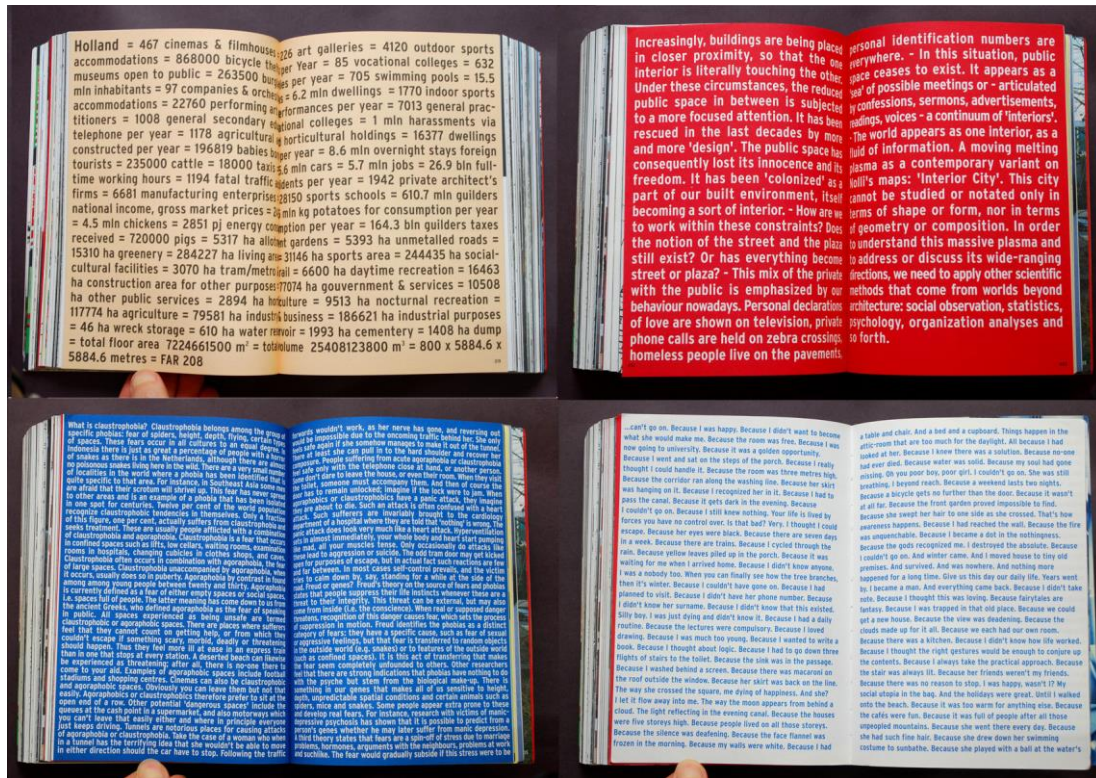 Holland = 467 cinemas & filmhouses 226 art galleries = 4120 outdoor sports
accommodations = 868000 bicycle per Year = 85 vocational colleges = 632
museums open to public = 263500 per year = 705 swimming pools = 15.5
mln inhabitants = 97 companies & = 6.2 mln dwellings = 1770 indoor sports
accommodations = 22760 performing performances per year = 7013 general prac-
titioners = 1008 general secondary colleges = 1 mln harassments via
telephone per year = 1178 agricultural horticultural holdings = 16377 dwellings
constructed per year = 196819 babies per year = 8.6 mln overnight stays foreign
tourists = 235000 cattle = 18000 taxis 5.6 mln cars = 5.7 mln jobs = 26.9 bln full-
time working hours = 1194 fatal traffic per year = 1942 private architect's
firms = 6681 manufacturing enterprises 28150 sports schools = 610.7 mln guilders
national income, gross market prices = mln kg potatoes for consumption per year
= 4.5 mln chickens = 2851 pj energy per year = 164.3 bln guilders taxes
received = 720000 pigs = 5317 ha gardens = 5393 ha unmetalled roads =
15310 ha greenery = 284227 ha living 31146 ha sports area = 244435 ha social-
cultural facilities = 3070 ha tram/metro = 6600 ha daytime recreation = 16463
ha construction area for other purposes 77074 ha gouvernment & services = 10508
ha other public services = 2894 ha = 9513 ha nocturnal recreation =
117774 ha agriculture = 79581 ha & business = 186621 ha industrial purposes
= 46 ha wreck storage = 610 ha water = 1993 ha cementery = 1408 ha dump
= total floor area 7224661500 m² = total volume 25408123800 m³ = 800 x 5884.6 x
5884.6 metres = FAR 208
Increasingly, buildings are being placed
in closer proximity, so that the one
interior is literally touching the other.
Under these circumstances, the reduced
public space in between is subjected
to a more focused attention. It has been
rescued in the last decades by more
and more 'design'. The public space has
consequently lost its innocence and its
freedom. It has been 'colonized' as a
part of our built environment, itself
becoming a sort of interior. - How are we
to work within these constraints? Does
the notion of the street and the plaza
still exist? Or has everything become
street or plaza? - This mix of the private
with the public is emphasized by our
behaviour nowadays. Personal declarations
of love are shown on television, private
phone calls are held on zebra crossings,
homeless people live on the pavements,
personal identification numbers are
everywhere. - In this situation, public
space ceases to exist. It appears as a
'sea' of possible meetings or - articulated
by confessions, sermons, advertisements,
readings, voices - a continuum of 'interiors'.
- The world appears as one interior, as a
fluid of information. A moving melting
plasma as a contemporary variant on
Nolli's maps: 'Interior City'. This city
cannot be studied or notated only in
terms of shape or form, nor in terms
of geometry or composition. In order
to understand this massive plasma and
to address or discuss its wide-ranging
directions, we need to apply other scientific
methods that come from worlds beyond
architecture: social observation, statistics,
psychology, organization analyses and
so forth.
What is claustrophobia? Claustrophobia belongs among the group of
specific phobias: fear of spiders, height, depth, flying, certain types
of spaces. These fears occur in all cultures to an equal degree. In
Indonesia there is just as great a percentage of people with a horror
of snakes as there is in the Netherlands, although there are almost
no poisonous snakes living here in the wild. There are a very small number
of localities in the world where a phobia has been identified that is
quite specific to that area. For instance, in Southeast Asia some men
are afraid that their scrotum will shrivel up. This fear has never spread
to other areas and is an example of a phobia that has been isolated
in one spot for centuries. Twelve per cent of the world population
recognize claustrophobic tendencies in themselves. Only a fraction
of this figure, one per cent, actually suffers from claustrophobia and
seeks treatment. These are usually people afflicted with a combination
of claustrophobia and agoraphobia. Claustrophobia is a fear that occurs
in confined spaces such as lifts, low cellars, waiting rooms, examination
rooms in hospitals, changing cubicles in clothes shops, and caves.
Claustrophobia often occurs in combination with agoraphobia, the fear
of large spaces. Claustrophobia unaccompanied by agoraphobia, when
it occurs, usually does so in puberty. Agoraphobia by contrast is found
among among young people between twenty and thirty. Agoraphobia
is currently defined as a fear of either empty spaces or social spaces,
i.e. spaces full of people. The latter meaning has come down to us from
the ancient Greeks, who defined agoraphobia as the fear of speaking
in public. All spaces experienced as being unsafe are termed
claustrophobic or agoraphobic spaces. There are places where sufferers
feel that they cannot count on getting help, or from which they
couldn't escape if something scary, morbid, deadly or threatening
should happen. Thus they feel more ill at ease in an express train
than in one that stops at every station. A deserted beach can likewise
be experienced as threatening; after all, there is no-one there to
come to your aid. Examples of agoraphobic spaces include football
stadiums and shopping centres. Cinemas can also be claustrophobic
and agoraphobic spaces. Obviously you can leave them but not that
easily. Agoraphobics or claustrophobics therefore prefer to sit at the
open end of a row. Other potential 'dangerous spaces' include the
queues at the cash point in a supermarket, and also motorways which
you can't leave that easily either and where in principle everyone
just keeps driving. Tunnels are notorious places for causing attacks
of agoraphobia or claustrophobia. Take the case of a woman who when
in a tunnel has the terrifying idea that she wouldn't be able to move
in either direction should the car have to stop. Following the traffic
forwards wouldn't work, as her nerve has gone, and reversing out
would be impossible due to the oncoming traffic behind her. She only
feels safe again if she somehow manages to make it out of the tunnel.
Then at least she can pull in to the hard shoulder and recover her
composure. People suffering from acute agoraphobia or claustrophobia
feel safe only with the telephone close at hand, or another person.
Some don't dare to leave the house, or even their room. When they visit
the toilet, someone must accompany them. And then of course the
door has to remain unlocked; imagine if the lock were to jam. When
agoraphobics or claustrophobics have a panic attack, they imagine
they are about to die. Such an attack is often confused with a heart
attack. Such sufferers are invariably brought to the cardiology
department of a hospital where they are told that 'nothing' is wrong. The
panic attack does look very much like a heart attack. Hyperventilation
sets in almost immediately, your whole body and heart start pumping
like mad, all your muscles tense. Only occasionally do attacks like
these lead to aggression or suicide. The odd tram door may get kicked
open for purposes of escape, but in actual fact such reactions are few
and far between. In most cases self-control prevails, and the victim
tries to calm down by, say, standing for a while at the side of the
road. Freud or genes? Freud's theory on the source of fears and phobias
states that people suppress their life instincts whenever these are a
threat to their integrity. This threat can be external, but may also
come from inside (i.e. the conscience). When real or supposed danger
threatens, recognition of this danger causes fear, which sets the process
of suppression in motion. Freud identifies the phobias as a distinct
category of fears: they have a specific cause, such as fear of sexual
or aggressive feelings, but that fear is transferred to random objects
in the outside world (e.g. snakes) or to features of the outside world
(such as confined spaces). It is this act of transferring that makes
the fear seem completely unfounded to others. Other researchers
feel that there are strong indications that phobias have nothing to do
with the psyche but stem from the biological make-up. There is
something in our genes that makes all of us sensitive to height,
depth, unpredictable spatial conditions and certain animals such as
spiders, mice and snakes. Some people appear extra prone to these
and develop real fears. For instance, research with victims of manic-
depressive psychosis has shown that it is possible to predict from a
person's genes whether he may later suffer from manic depression.
A third theory states that fears are a spin-off of stress due to marriage
problems, hormones, arguments with the neighbours, problems at work
and suchlike. The fear would gradually subside if this stress were to be
...can't go on. Because I was happy. Because I didn't want to become
what she would make me. Because the room was free. Because I was
now going to university. Because it was a golden opportunity.
Because I went and sat on the steps of the porch. Because I really
thought I could handle it. Because the room was three metres high.
Because the corridor ran along the washing line. Because her skirt
was hanging on it. Because I recognized her in it. Because I had to
pass the canal. Because it gets dark in the evening. Because
I couldn't go on. Because I still knew nothing. Your life is lived by
forces you have no control over. Is that bad? Very. I thought I could
escape. Because her eyes were black. Because there are seven days
in a week. Because there are trains. Because I cycled through the
rain. Because yellow leaves piled up in the porch. Because it was
waiting for me when I arrived home. Because I didn't know anyone.
I was a nobody too. When you can finally see how the tree branches,
then it's winter. Because I couldn't have gone on. Because I had
planned to visit. Because I didn't have her phone number. Because
I didn't know her surname. Because I didn't know that this existed.
Silly boy. I was just dying and didn't know it. Because I had a daily
routine. Because the lectures were compulsory. Because I loved
drawing. Because I was much too young. Because I wanted to write a
book. Because I thought about logic. Because I had to go down three
flights of stairs to the toilet. Because the sink was in the passage.
Because I washed behind a screen. Because there was macaroni on
the roof outside the window. Because her skirt was back on the line.
The way she crossed the square, me dying of happiness. And she?
I let it flow away into me. The way the moon appears from behind a
cloud. The light reflecting in the evening canal. Because the houses
were five storeys high. Because people lived on all those storeys.
Because the silence was deafening. Because the face flannel was
frozen in the morning. Because my walls were white. Because I had
a table and chair. And a bed and a cupboard. Things happen in the
attic-room that are too much for the daylight. All because I had
looked at her. Because I knew there was a solution. Because no-one
had ever died. Because water was solid. Because my soul had gone
missing. Oh you poor boy, poor girl. I couldn't go on. She was still
breathing, I beyond reach. Because a weekend lasts two nights.
Because a bicycle gets no further than the door. Because it wasn't
at all far. Because the front garden proved impossible to find.
Because she swept her hair to one side as she crossed. That's how
awareness happens. Because I had reached the wall. Because the fire
was unquenchable. Because I became a dot in the nothingness.
Because the gods recognized me. I destroyed the absolute. Because
I couldn't go on. And winter came. And I moved house to tiny old
premises. And survived. And was nowhere. And nothing more
happened for a long time. Give us this day our daily life. Years went
by. I became a man. And everything came back. Because I didn't take
note. Because I thought this was loving. Because fairytales are
fantasy. Because I was trapped in that old place. Because we could
get a new house. Because the view was deadening. Because the
clouds made up for it all. Because we each had our own room.
Because there was a kitchen. Because I didn't know how life worked.
Because I thought the right gestures would be enough to conjure up
the contents. Because I always take the practical approach. Because
the stair was always lit. Because her friends weren't my friends.
Because there was no reason to stop. I was happy, wasn't I? My
social utopia in the bag. And the holidays were great. Until I walked
onto the beach. Because it was too warm for anything else. Because
the cafés were fun. Because it was full of people after all those
unpeopled mountains. Because she went there every day. Because
she had such fine hair. Because she drew down her swimming
costume to sunbathe. Because she played with a ball at the water's